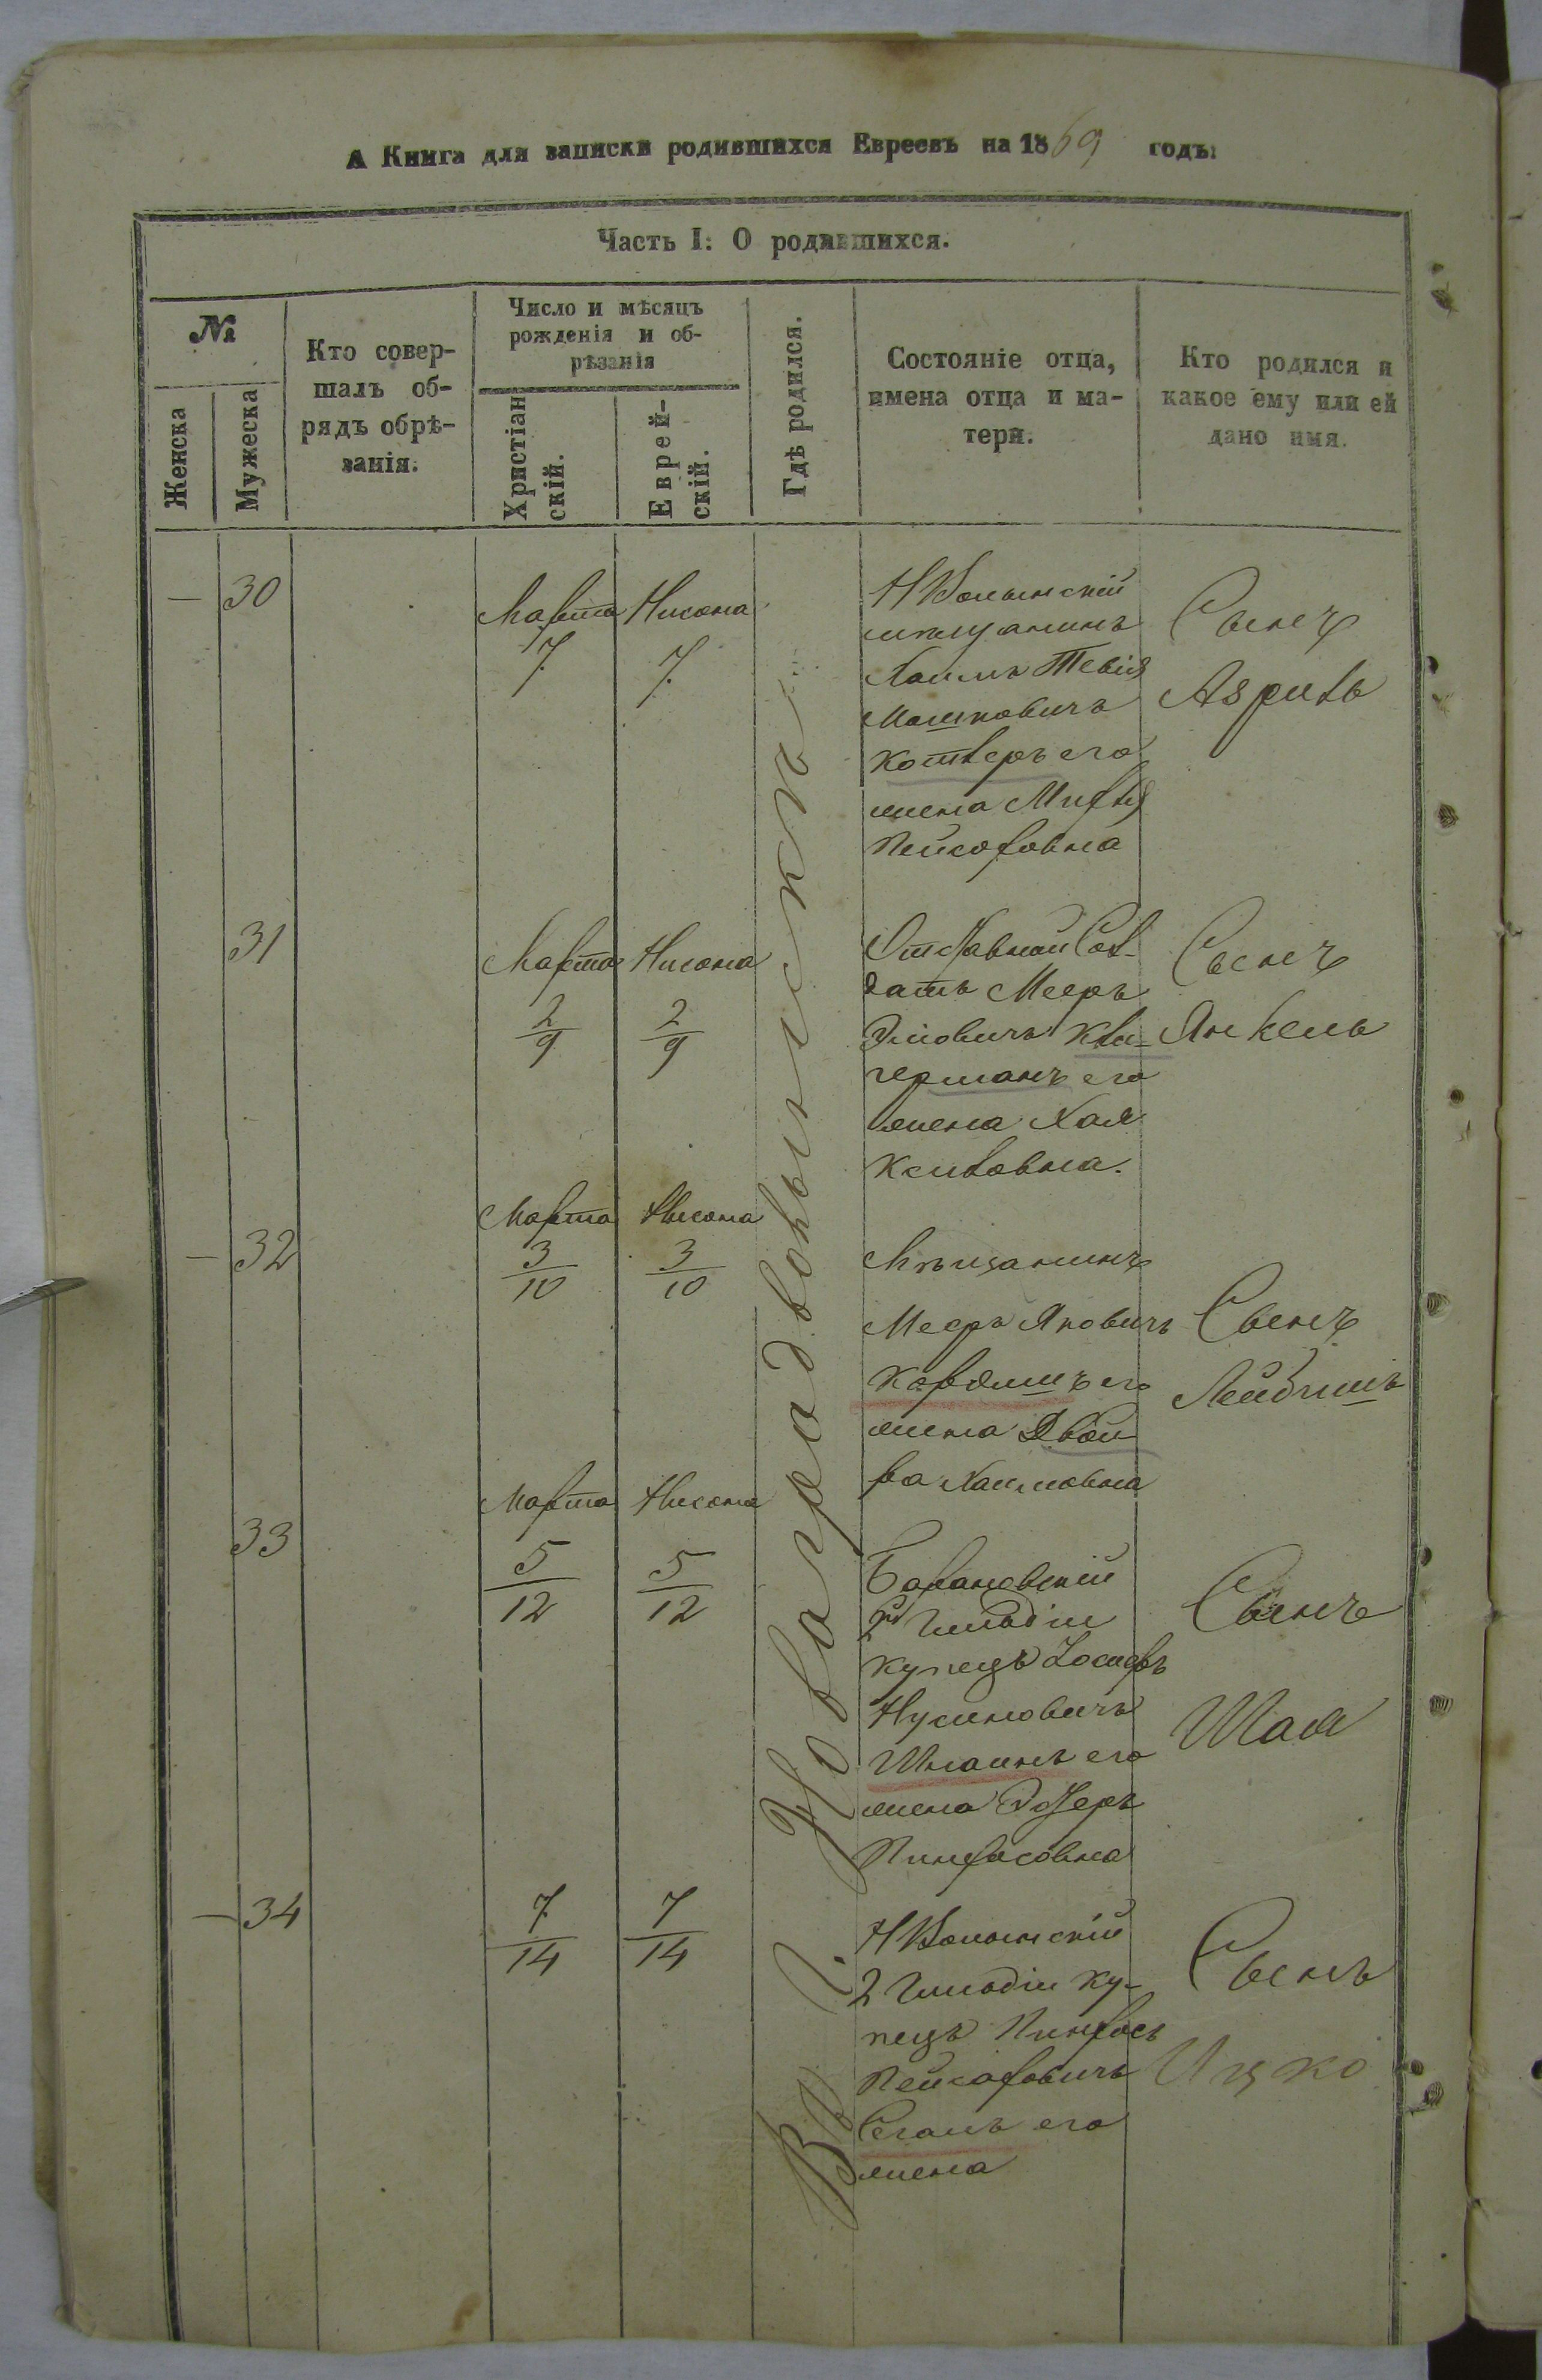 А Книга для записки родившихся Евреевъ на 1869 годъ:
Часть I: О родившихся.
№
Женска
Мужеска
Кто совер-
шалъ об-
рядъ обрѣ-
занія.
Число и мѣсяцъ
рожденія и об-
рѣзанія
Христіан
скій.
Еврей-
скій.
Гдѣ родился.
Состояніе отца,
имена отца и ма-
тери.
Кто родился и
какое ему или ей
дано имя.
Въ г. Новоградволынскѣ
— 30
Марта
7.
Нисона
7.
НВолынскій
мещанинъ
Хаимъ Тевія
Мошковичъ
его
жена
Пейсаховна
Сынъ
31
Марта
2
9
Нисона
2
9
Отставной Сол-
датъ Мееръ
его
жена Хая
Сынъ
Янкель
— 32
Марта
3
10
Нисона
3
10
Мѣщанинъ
Мееръ Яновичъ
его
жена Двой
ра Хаимовна
Сынъ
Лейбишъ
33
Марта
5
12
Нисона
5
12
Барановскій
2й Гильдіи
купецъ Іосифъ
Нусиновичъ
его
жена Эстеръ
Пинхасовна
Сынъ
Шая
— 34
7
14
7
14
НВолынскій
2 Гильдіи ку-
пецъ Пинхасъ
Пейсаховичъ
Сегалъ его
жена
Сынъ
Ицко